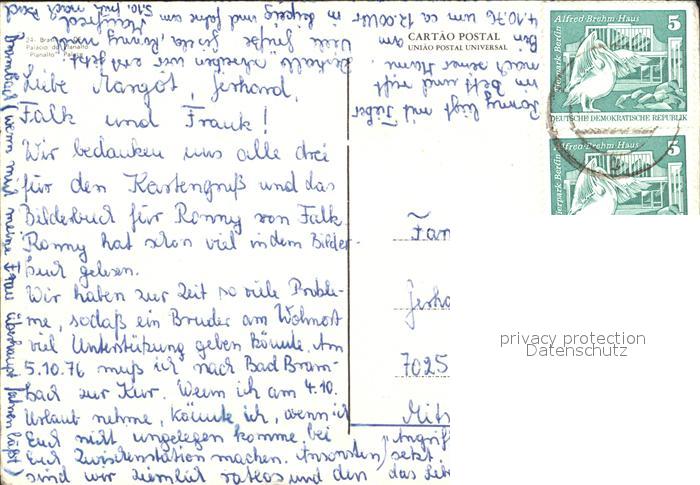 24. Bra
Palácio do Planalto
"Planalto" Pal
CARTÃO POSTAL
UNIÃO POSTAL UNIVERSAL
Alfred Brehm Haus
5
Tierpark Berlin
DEUTSCHE DEMOKRATISCHE REPUBLIK
Alfred Brehm Haus
5
Tierpark Berlin
Liebe Margot, Gerhard,
Falk und Frank!
Wir bedanken uns alle drei
für den Kartengruß und das
Bilderbuch für Ronny von Falk.
Ronny hat schon viel in dem Bilder-
buch gelesen.
Wir haben zur Zeit so viele Proble-
me, sodaß ein Bruder am Wohnort
viel Unterstützung geben könnte. Am
5.10.76 muß ich nach Bad Bram-
bach zur Kur. Wenn ich am 4.10.
Urlaub nehme, könnte ich, wenn ich
Euch nicht ungelegen komme, bei
Euch Zwischenstation machen. Ansonsten
sind wir ziemlich ratlos und den
"Angrif
setzt.
das Leb
Ronny liegt mit Fieber
im Bett und ruft
nach seiner Mama.
Bin
4.10.76 um ca 12.00 Uhr in Leipzig und fahre am 5.10. früh nach Bad
Brambach (wenn mich meine Frau überhaupt fahren läßt)
Viele Grüße Gerda, Ronny und
Manfred
schreiben wir erst jetzt
Fam
Gerha
7025
Mitt
privacy protection
Datenschutz